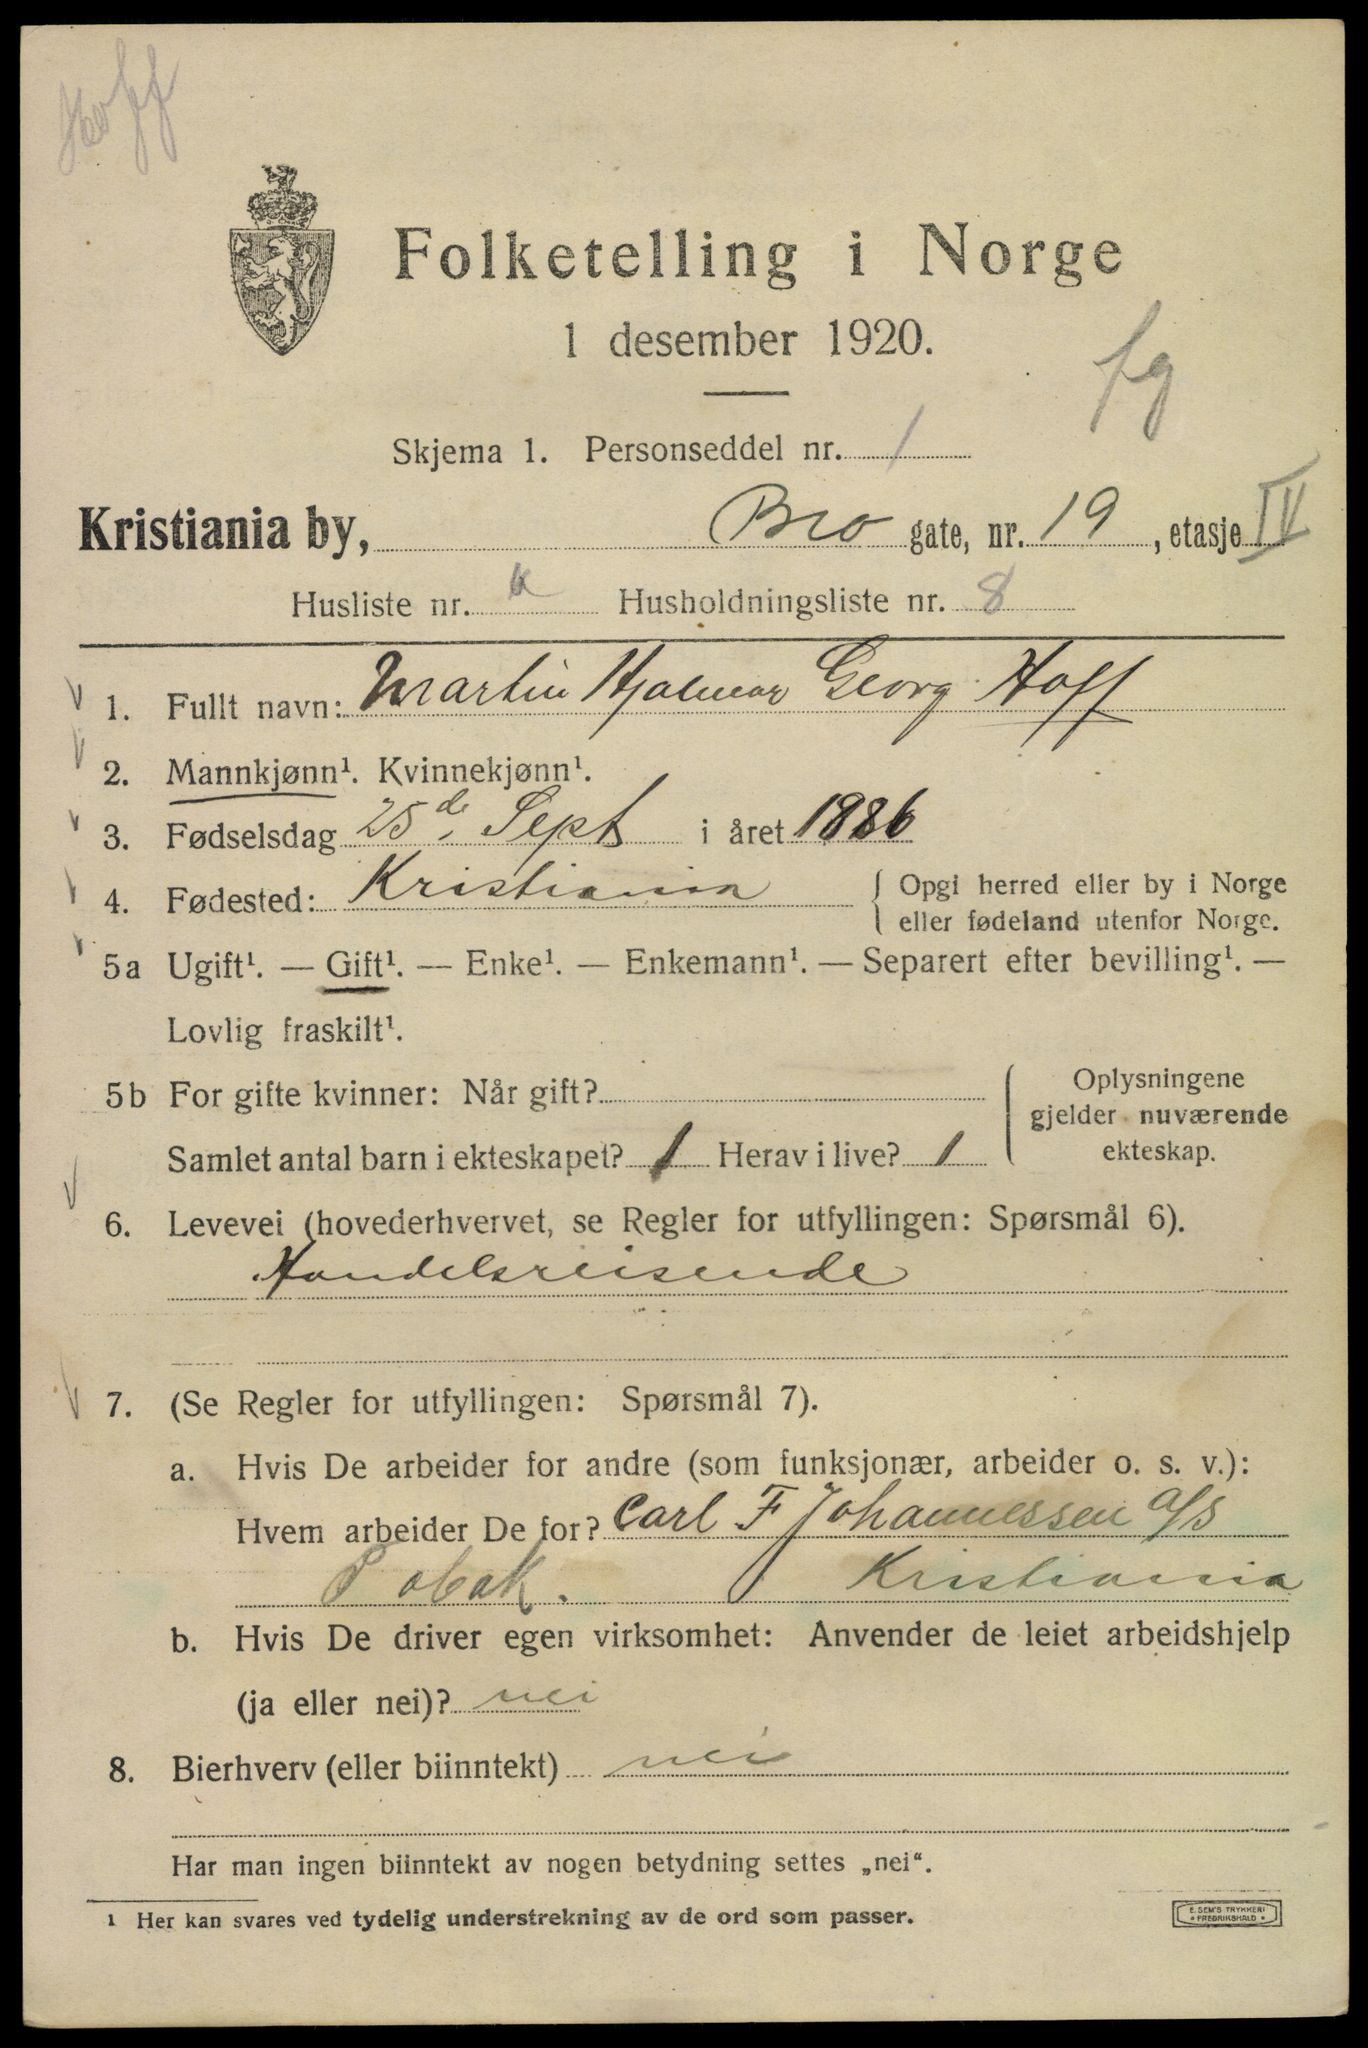 Hoff
Folketelling i Norge
1 desember 1920.
fg
Skjema 1. Personseddel nr. 1
Kristiania by, Bro gate, nr. 19, etasje IV
Husliste nr. Husholdningsliste nr. 8
1. Fullt navn: Martin Hjalmar Georg Hoff
2. Mannkjønn¹. Kvinnekjønn¹.
3. Fødselsdag 25de Sept i året 1886
4. Fødested: Kristiania { Opgi herred eller by i Norge
eller fødeland utenfor Norge.
5a Ugift¹. — Gift¹. — Enke¹. — Enkemann¹. — Separert efter bevilling¹. —
Lovlig fraskilt¹.
5b For gifte kvinner: Når gift? { Oplysningene
gjelder nuværende
ekteskap.
Samlet antal barn i ekteskapet? 1 Herav i live? 1
6. Levevei (hovederhvervet, se Regler for utfyllingen: Spørsmål 6).
Handelsreisende
7. (Se Regler for utfyllingen: Spørsmål 7).
a. Hvis De arbeider for andre (som funksjonær, arbeider o. s. v.):
Hvem arbeider De for? Carl F Johannessen a/s
Tobak. Kristiania
b. Hvis De driver egen virksomhet: Anvender de leiet arbeidshjelp
(ja eller nei)? nei
8. Bierhverv (eller biinntekt) nei
Har man ingen biinntekt av nogen betydning settes „nei“.
1 Her kan svares ved tydelig understrekning av de ord som passer.
E. SEM'S TRYKKERI
FREDRIKSHALD